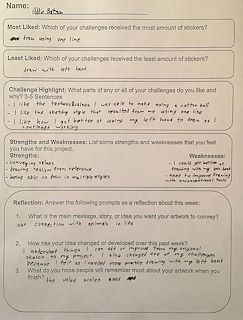 Name:
Most Liked: Which of your challenges received the most amount of stickers?
draw using one line
Least Liked: Which of your challenges received the least amount of stickers?
draw with left hand
Challenge Highlight: What parts of any or all of your challenges do you like
and why? 3-5 Sentences
- I like the I was able to make using a cotton ball
- I like the sketchy style that resulted from me using one line
- I like how I got better at using my left hand to draw as I
continued working
Strengths and Weaknesses: List some strengths and weaknesses that you
feel you have for this project.
Strengths: Weaknesses:
- conveying values - I could get better at
drawing with my left hand
- drawing realism from reference - need to improve drawing
with unconventional tools
- being able to draw in multiple styles
Reflection: Answer the following prompts as a reflection about this week:
1. What is the main message, story, or idea you want your artwork to convey?
our connection with animals in life
2. How has your idea changed or developed over this past week?
I understand things I can add or improve from my original
sketch to my project. I also changed one of my challenges
because I felt as I needed more practice drawing with my left hand
3. What do you hope people will remember most about your artwork when you
finish?
the value scales used